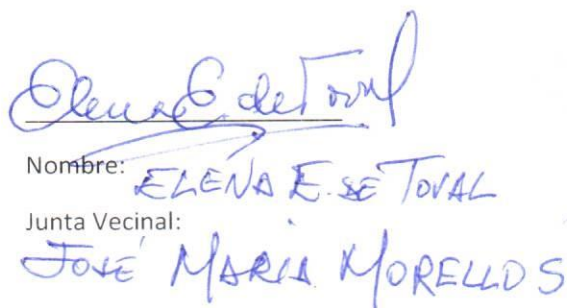 Elena E. de Toval
Nombre: ELENA E. DE TOVAL
Junta Vecinal:
JOSÉ MARIA MORELLOS